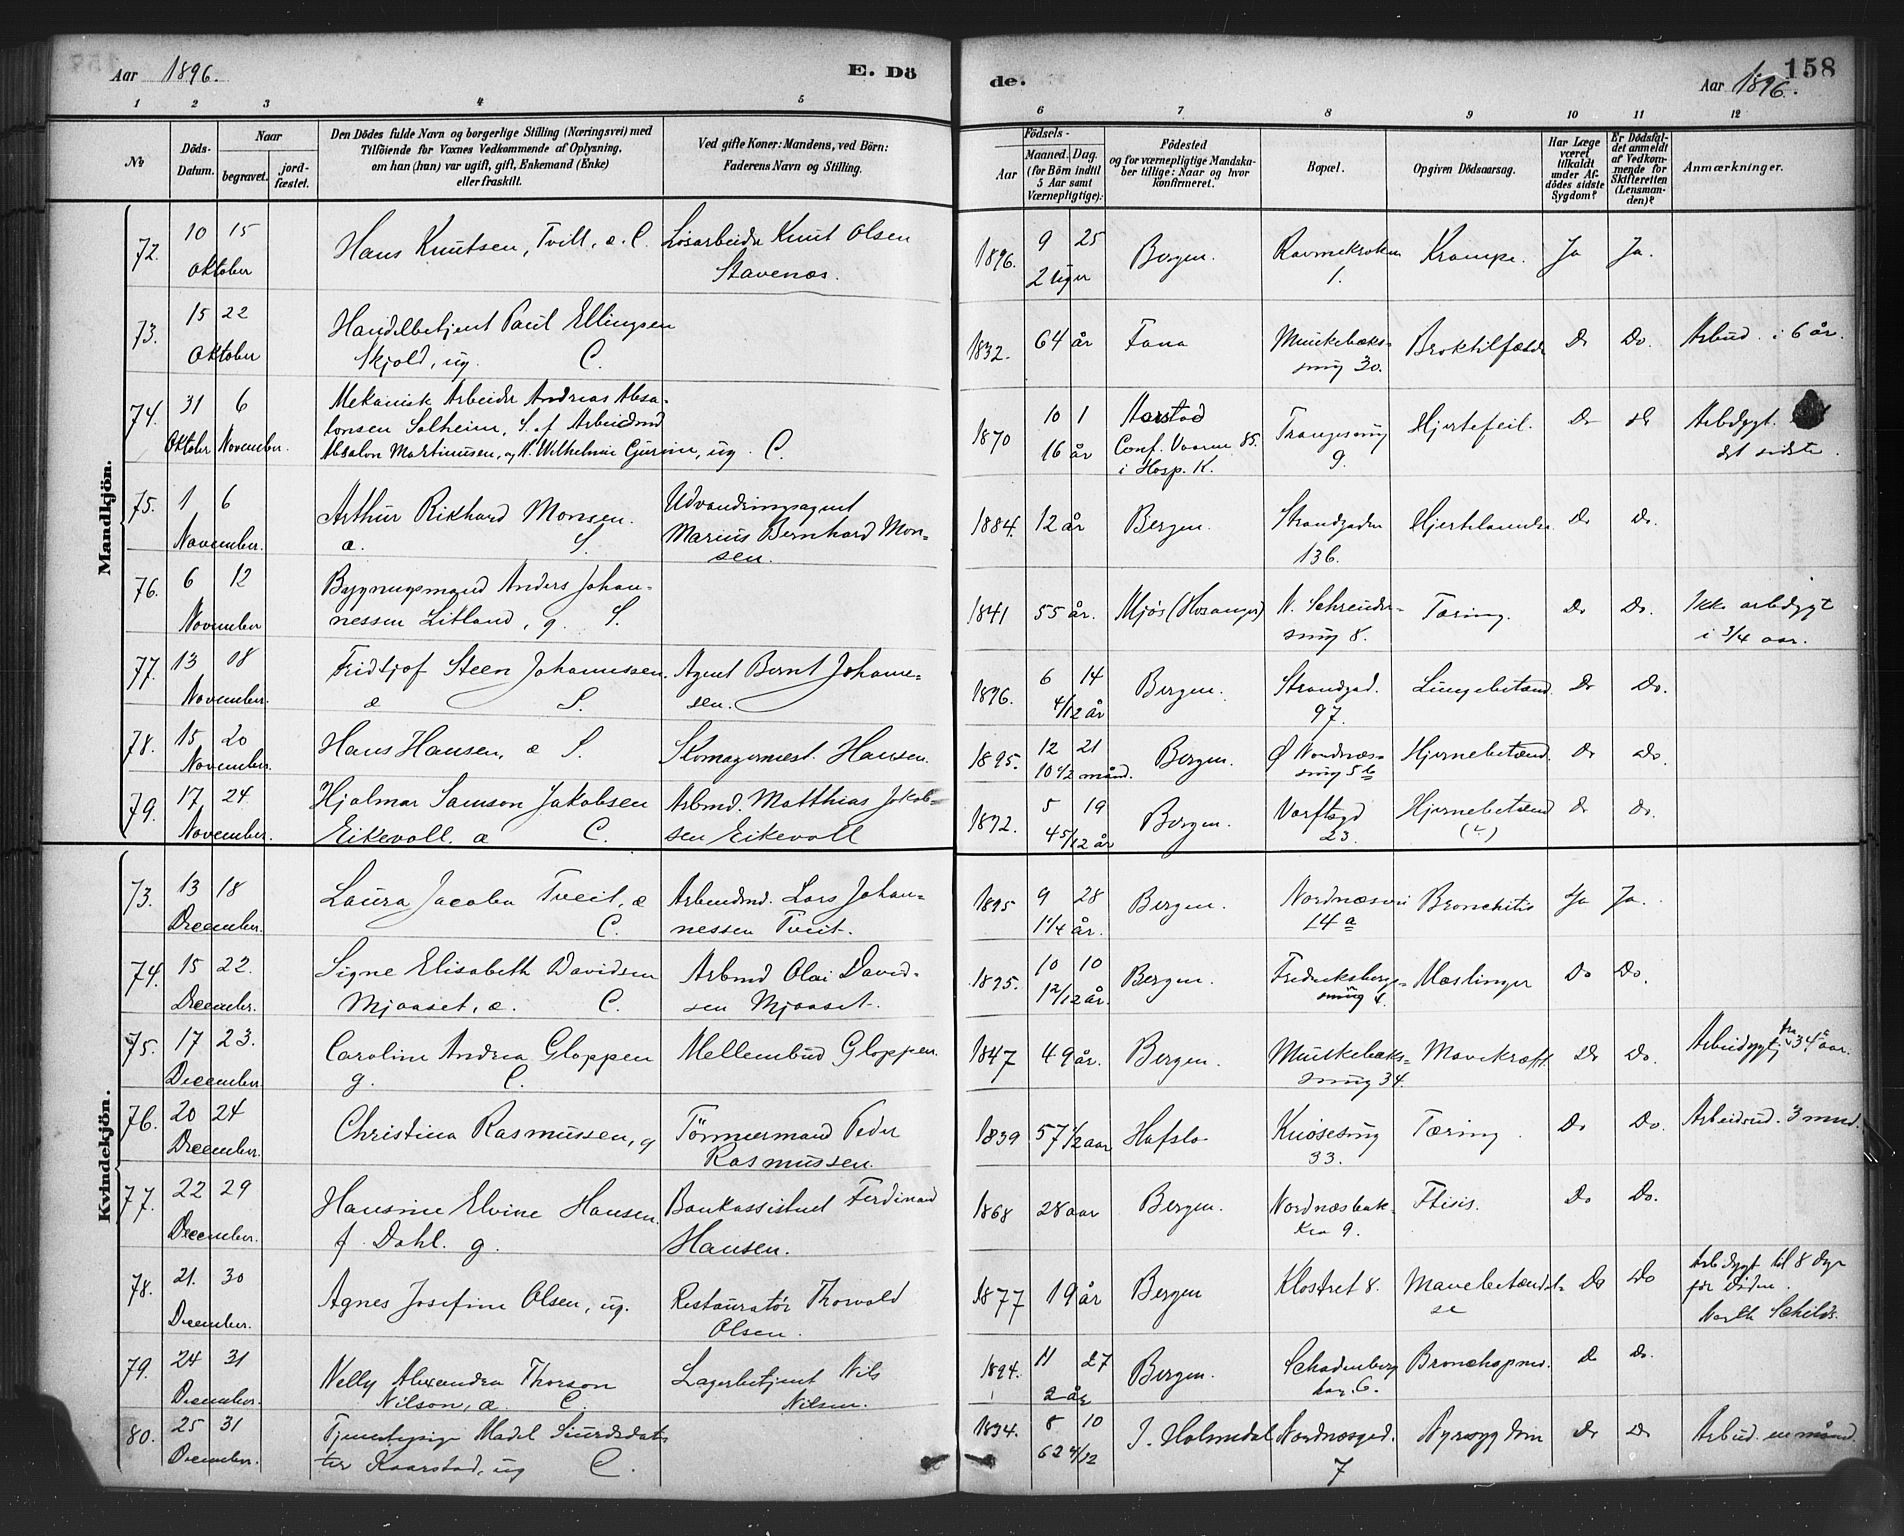 Aar 1896.
E. Dö
de.
158
Aar 1896.
1 2 3 4 5
6 7 8 9 10 11 12
No
Döds-Datum.
Naar
begravet.
jord-fæstet.
Den Dödes fulde Navn og borgerlige Stilling (Næringsvei) med
Tilföiende for Voxnes Vedkommende af Oplysning,
om han (hun) var ugift, gift, Enkemand (Enke)
eller fraskilt.
Ved gifte Koner: Mandens, ved Börn:
Faderens Navn og Stilling.
Födsels-
Aar
Maaned. Dag.
(for Börn indtil
5 Aar samt
Værnepligtige):
Födested
og for værnepligtige Mandska-
ber tillige: Naar og hvor
konfirmeret.
Bopæl.
Opgiven Dödsaarsag.
Har Læge
været
tilkaldt
under Af-
dödes sidste
Sygdom?
Er Dödsfal-
det anmeldt
af Vedkom-
mende for
Skifteretten
(Lensman-
den)?
Anmærkninger.
Mandkjön.
72. 10 15 Hans Knutsen, Tvill, æ. C. Løsarbeider Knut Olsen 1896. 9 25 Bergen. Ravnekroken Krampe. Ja Ja.
Oktober Stavenæs. 2 uger 1.
73. 15 22 Handelbetjent Paul Ellingsen 1832. 64 år Fana Munkebæks- Do Do. Arbud. i 6 år.
Oktober Skjold, ug. C. smug 30.
74. 31 6 Mekanisk Arbeider Andreas Absa- 1870 10 1 Aarstad Trangesmug Hjertefeil. Do Do Arbdygt.
Oktober November. lonsen Solheim, S. af Arbeidsmd 16 år Conf. Vaaren 85. 9. det sidste.
Absalon Martinusen, og Wilhelmine, ug. C. i Hosp. K.
75. 1 6 Arthur Rikhard Monsen. Udvandringsagent 1884. 12 år Bergen. Strandgaden Do Do.
November. æ. S. Marius Bernhard Mon- 136.
sen.
76. 6 12 Bygningsmand Anders Johan- 1841 55 år. Mjøs (Hosanger) Tæring. Do Do. Ikke arbdygt
November nessen Litland, g. S. smug 8. i 3/4 aar.
77. 13 18 Fridtjof Steen Johannesen. Agent Bernt Johanne- 1896. 6 14 Bergen. Strandgad. Lungebetænd. Do Do.
November. æ S. sen. 4/12 år 97.
78. 15 20 Hans Hansen, æ S. Skomagermest. Hansen. 1895. 12 21 Bergen. Ø Nordnæs- Hjernebetænd. Do Do.
November. 10 1/2 månd. smug 5 b
79. 17 24 Hjalmar Samson Jakobsen Arbmd. Matthias Jakob- 1892. 5 19 Bergen. Værftsgd Hjernebetænd Do Do.
November. Eikevoll. æ C. sen Eikevoll 4 5/12 år 23.
Kvindekjön.
73. 13 18 Laura Jacoba Tveit, æ Arbeidmd. Lars Johan- 1895 9 28 Bergen. Nordnæsvei Bronchitis Ja Ja.
December. C. nessen Tveit. 1 1/4 år. 14 a
74. 15 22. Signe Elisabeth Davidsen Arbmd Olai David- 1895. 10 10 Bergen. Fredriksbergs- Mæslinger Do Do.
December. Mjaaset, æ. C. sen Mjaaset. 1 2/12 år. smug 4.
75. 17 23. Caroline Andrea Gloppen Mellembud Gloppen. 1847 49 år. Bergen. Munkebæks- Mavekræft. Do Do. Arbeidygtig fra 34 aar.
December. g. C. smug 34.
76. 20 24 Christina Rasmussen, g Tømmermand Peder 1839 57 1/2 aar Hafslo Knøsesmug Tæring. Do Do. Arbeidsud. 3 mnd.
December. Rasmussen. 33.
77. 22 29 Hansine Elvine Hansen. Bankassistent Ferdinand 1868 28 aar Bergen. Nordnæsbak- Ftisis. Do Do.
December. f. Dahl. g. Hansen. ken 9.
78. 21. 30 Agnes Josefine Olsen, ug. Restauratør Thorvald 1877 19 år Bergen Klostret 8. Mavebetændel- Do Do Arbdygt til 8 dge
December. Olsen. se før Døden.
79. 24 31 Nelly Alexandra Thorson Lagerbetjent Nils 1894. 11 27 Bergen. Schadenberg Bronchopneu. Do Do.
December. Nilson, æ. C. Nilsen. 2 år 6.
80. 25 31 Madel Siurdsdat- 1834. 8 10 J. Holmedal Nordnæsgad. Nyresygdom Do Do Arbud. en månd.
December. ter Kaarstad, ug C. 62 4/12 7